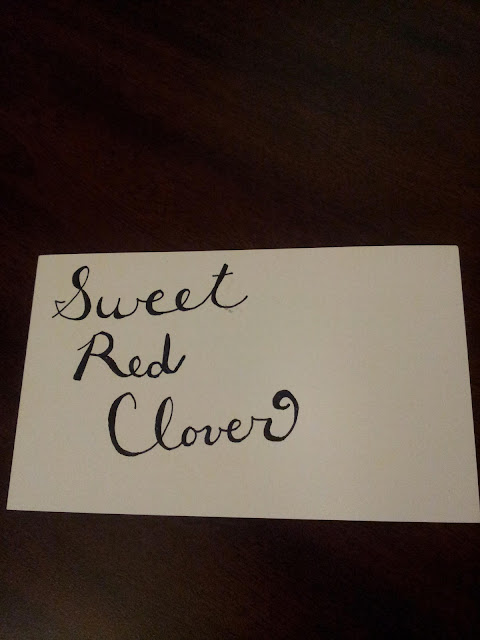 Sweet
Red
Clover